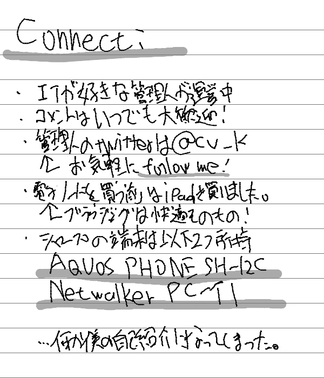 Connect:
・ITが好きな管理人が運営中
・コメントはいつでも大歓迎!
・管理人のtwitterは@cv_k
↑お気軽にfollow me!
・電子ノートを買う前にipadを買いました。
↑ブラウジングは快適そのもの!
・シャープの端末は以下2つ所持
AQUOS PHONE SH-12C
Netwalker PC-T1
…何か僕の自己紹介になってしまった。